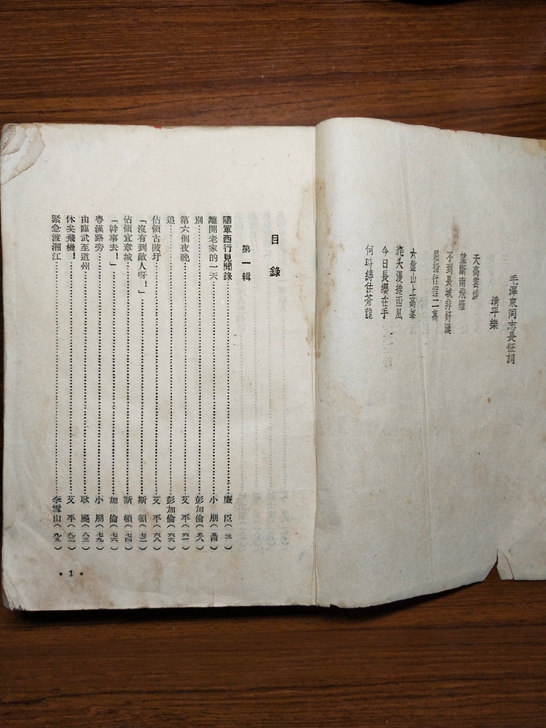 毛澤東同志長征詞
清平樂
天高雲淡
望斷南飛雁
不到長城非好漢
屈指行程二萬
六盤山上高峯
旄頭漫捲西風
今日長纓在手
何時縛住蒼龍
目錄
第一輯
隨軍西行見聞錄 廉臣(三)
離開老家的一天 小朋(
別 彭加倫(
第六個夜晚 艾平(六一)
追 彭加倫(六六)
佔領古陂圩 艾平(六八)
「沒有到敵人呀!」 斯頓(七二)
佔領宜章城 斯頓(七四)
「幹事去!」 加倫(七六)
粵漢路旁 小朋(七九)
由臨武至道州 耿飈(八二)
休矣飛機! 艾平(九二)
緊急渡湘江 李雪山(九九)
• 1 •